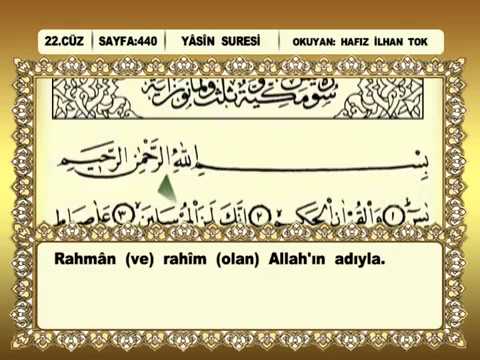 22.CÜZ SAYFA:440 YÂSİN SURESİ OKUYAN: HAFIZ İLHAN TOK
بِسْمِ اللّٰهِ الرَّحْمٰنِ الرَّحِيمِ
يسٓ ۝١ وَالْقُرْاٰنِ الْحَكِيمِ ۝٢ اِنَّكَ لَمِنَ الْمُرْسَلِينَ ۝٣ عَلٰى صِرَاطٍ
Rahmân (ve) rahîm (olan) Allah'ın adıyla.